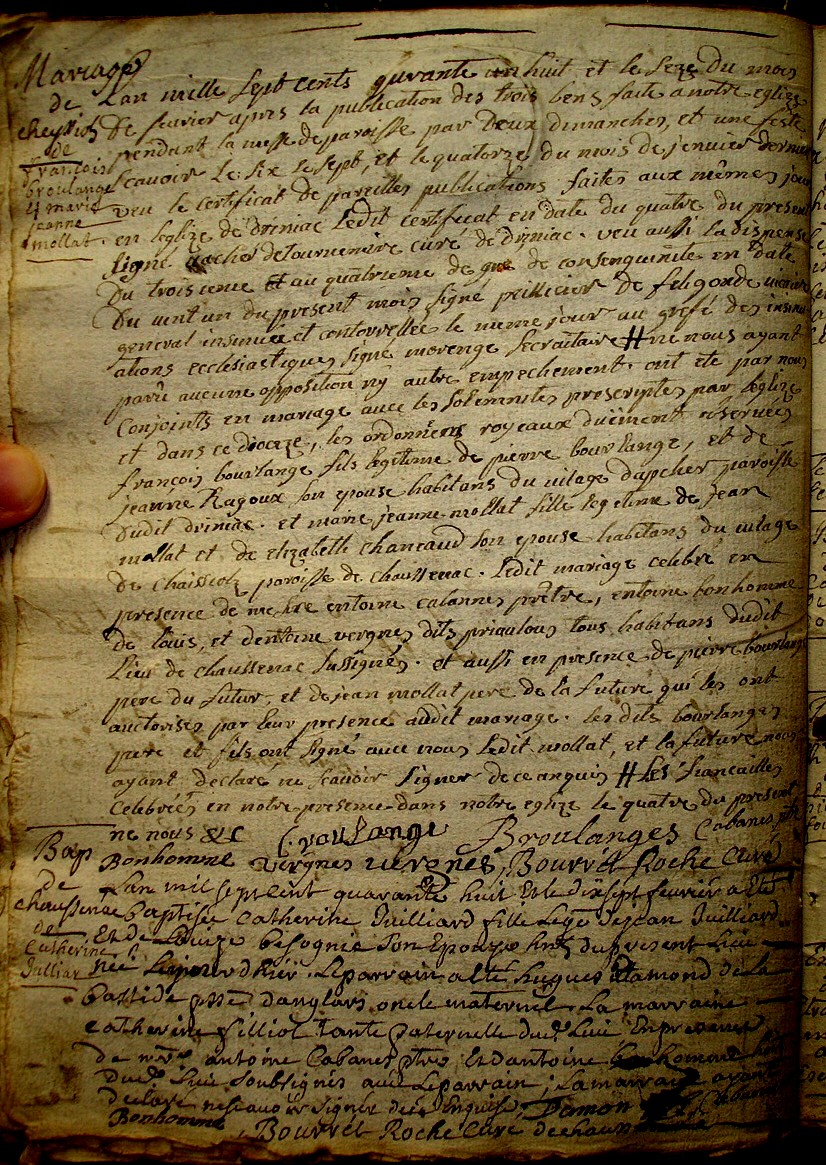 Mariage
de
cheyssiol
de
françois
broulange
& marie
jeanne
mollat.
Lan mille sept cents quarante un huit et le seze du mois
De fevrier apres la publication des trois bens faite a notre eglize
pendant la messe de paroisse par Deux dimanches, et une feste
scavoir le six le sept, et le quatorze du mois de jenvier dernier
veu le certificat de pareilles publications faites aux mêmes jours
en leglize de driniac Ledit certificat en date du quatre du present
signé de tournemire curé de driniac. veu aussi la dispense
Du trois et au quatrieme de gre de consenguinité en date
Du vint un du present mois signé pellicier de feligonde vicaire
general insinuée et controrellée le meme jour au grefé des insinu
ations ecclesiastiques signé morenge secraitaire # ne nous ayant
parû aucune opposition ny autre empechement. ont eté par nous
Conjoints en mariage avec les solemnités prescriptes par leglize
et dans ce dioceze, les ordonnences royeaux duëment observées
françois bourlange fils legitime de pierre bourlange, et de
jeanne Ragoux son epouse habitans du vilage dapcher paroisse
Dudit driniac. et marie jeanne mollat fille legitime de jean
mollat et de elizabeth chancaud son epouse habitans du vilage
De chaissiol paroisse de chaussenac. Ledit mariage celebré en
presence de me entoine cabannes prêtre, entoine bonhomme
de louis, et dentoine vergnes dits priaulous tous habitans dudit
Lieu de chaussenac sussignés. et aussi en presence de pierre bourlange
pere du futur, et de jean mollat pere de la future qui les ont
auctorises par leur presence audit mariage. les dits bourlanges
pere et fils ont signé avec nous Ledit mollat, et la future nous
ayant declaré ne scavoir signer de ce anquis # Les fiancailles
Celebrées en notre presence dans notre eglize le quatre du present
ne nous &c Broulanges Cabanes ptre
Bonhomme vergnes vergnes, Bourret Roche Curé
Bap
de
chaussenac
de
Catherine
Juilliar
Lan mil sept cent quarante huit Et le dixsept fevrier a Eté
Baptisée Catherine Juilliard fille Legme de jean Juilliard
Et de Louize besognie son Epouze hns du present Lieu
née Le jour dhier. Le parrain a Eté hugues Damond de La
bastide psse danglars oncle maternel. La marraine
Catherine filliol tante paternelle dud. Lieu En presence
de mre antoine Cabanes ptre Et dantoine bonhomme
dud. Lieu soubsignés avec Le parrain, La marraine ayant
declaré ne scavoir signer de ce Enquise. Damon Cabanes
Bonhomme, Bourret Roche Curé de chaussenac